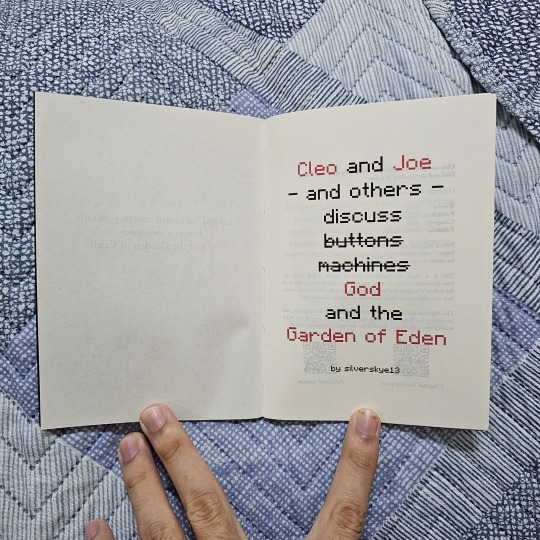 Cleo and Joe
- and others -
discuss
buttons
machines
God
and the
Garden of Eden
by silverskye13